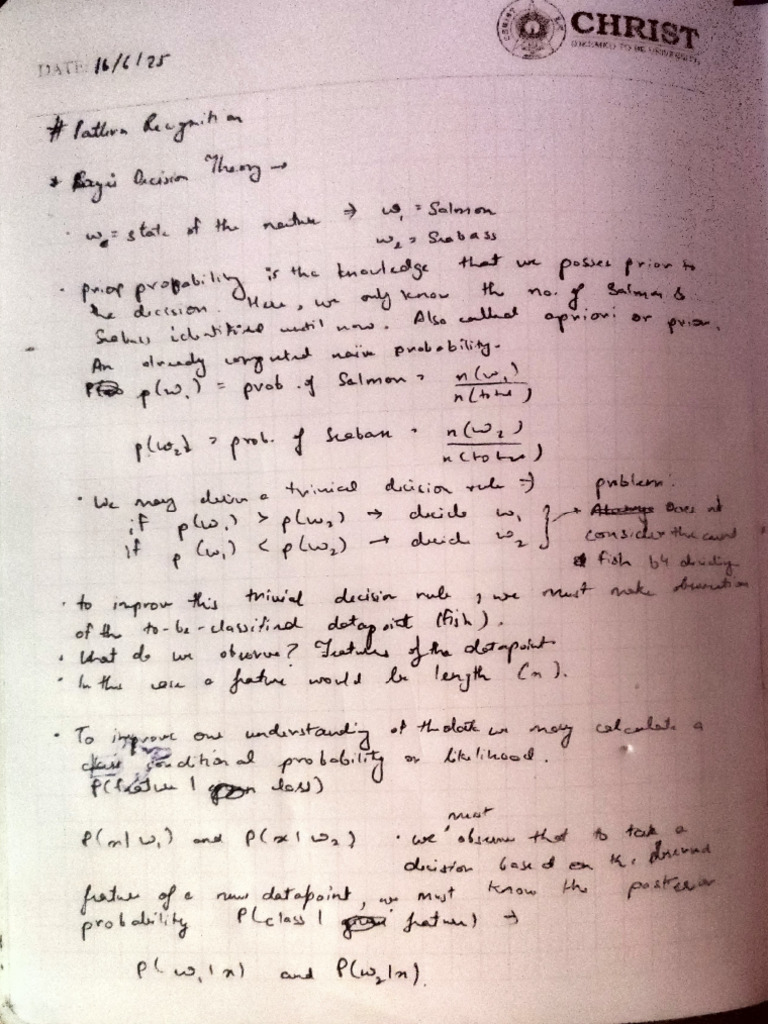 CHRIST
(DEEMED TO BE UNIVERSITY)
DATE: 16/6/25
# Pattern Recognition
* Bayes Decision Theory →
· w = state of the nature → w₁ = Salmon
w₂ = Seabass
· prior propability is the knowledge that we posses prior to
the decision. Here, we only know the no. of Salmon &
Seabass identified until now. Also called apriori or prior.
An already computed naive probability.
p(w₁) = prob. of Salmon = n(w₁) / n(total)
p(w₂) = prob. of Seabass = n(w₂) / n(total)
· We may derive a trivial decision rule ⇒
if p(w₁) > p(w₂) → decide w₁
if p(w₁) < p(w₂) → decide w₂
problem:
Does not
consider the
fish b4 deciding
· to improve this trivial decision rule, we must make observation
of the to-be-classified datapoint (fish).
· What do we observe? Features of the datapoint
· In this case a feature would be length (x).
· To improve our understanding of the data we may calculate a
class conditional probability or likelihood.
P(feature | class)
P(x|w₁) and P(x|w₂) · we must observe that to take a
decision based on the observed
feature of a new datapoint, we must know the posterior
probability P(class | feature) →
P(w₁|x) and P(w₂|x).